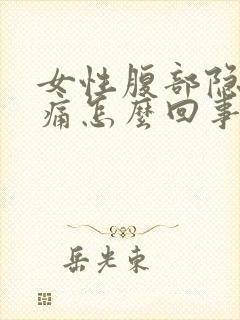 女性腹部隐
痛怎麼回事
岳光東